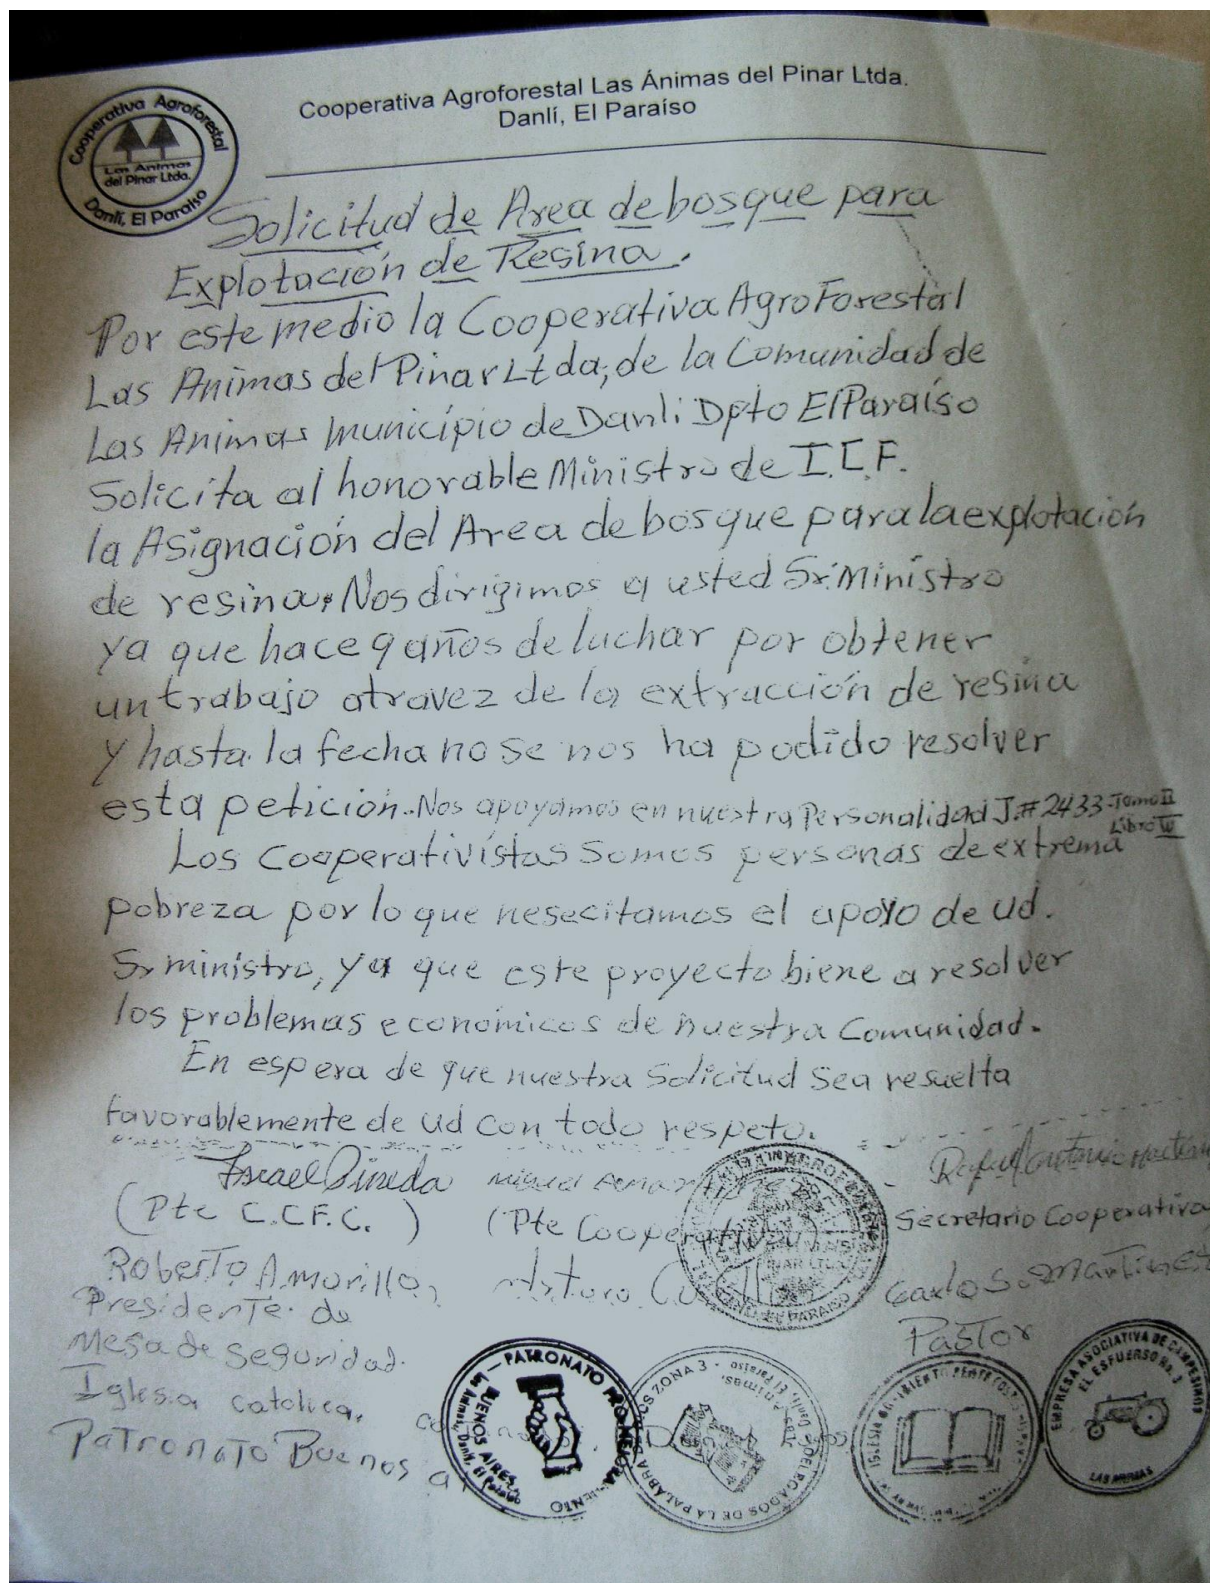 Cooperativa Agroforestal Las Ánimas del Pinar Ltda.
Danlí, El Paraíso
Cooperativa Agroforestal
Las Animas
del Pinar Ltda.
Danlí, El Paraíso
Solicitud de Area de bosque para
Explotación de Resina.
Por este medio la Cooperativa AgroForestal
Las Animas del Pinar Ltda, de la Comunidad de
Las Animas municipio de Danli Dpto El Paraíso
Solicita al honorable Ministro de I.C.F.
la Asignación del Area de bosque para la explotación
de resina. Nos dirigimos a usted Sr. Ministro
ya que hace 9 años de luchar por obtener
un trabajo atravez de la extracción de resina
y hasta la fecha no se nos ha podido resolver
esta petición. Nos apoyamos en nuestra Personalidad J. # 2433 Tomo II
Libro IV
Los Cooperativistas Somos personas de extrema
pobreza por lo que nesecitamos el apoyo de ud.
Sr ministro, ya que este proyecto biene a resolver
los problemas económicos de nuestra Comunidad.
En espera de que nuestra Solicitud Sea resuelta
favorablemente de ud con todo respeto.
Israel Pineda
Rafael Antonio
(Pte C.C.F.C.) (Pte Cooperativa) Secretario Cooperativa
Roberto Amarillo, Arturo Carlos Martines
Presidente de
Pastor
Mesa de Seguridad.
Iglesia catolica,
Patronato Buenos
PATRONATO PRO MEJORAMIENTO
BUENOS AIRES
Las Animas, Danlí, El Paraíso
DELEGADOS DE LA PALABRA DE DIOS ZONA 3
Las Animas, Danlí, El Paraiso
IGLESIA
EMPRESA ASOCIATIVA DE CAMPESINOS
EL ESFUERSO No. 3
LAS ANIMAS